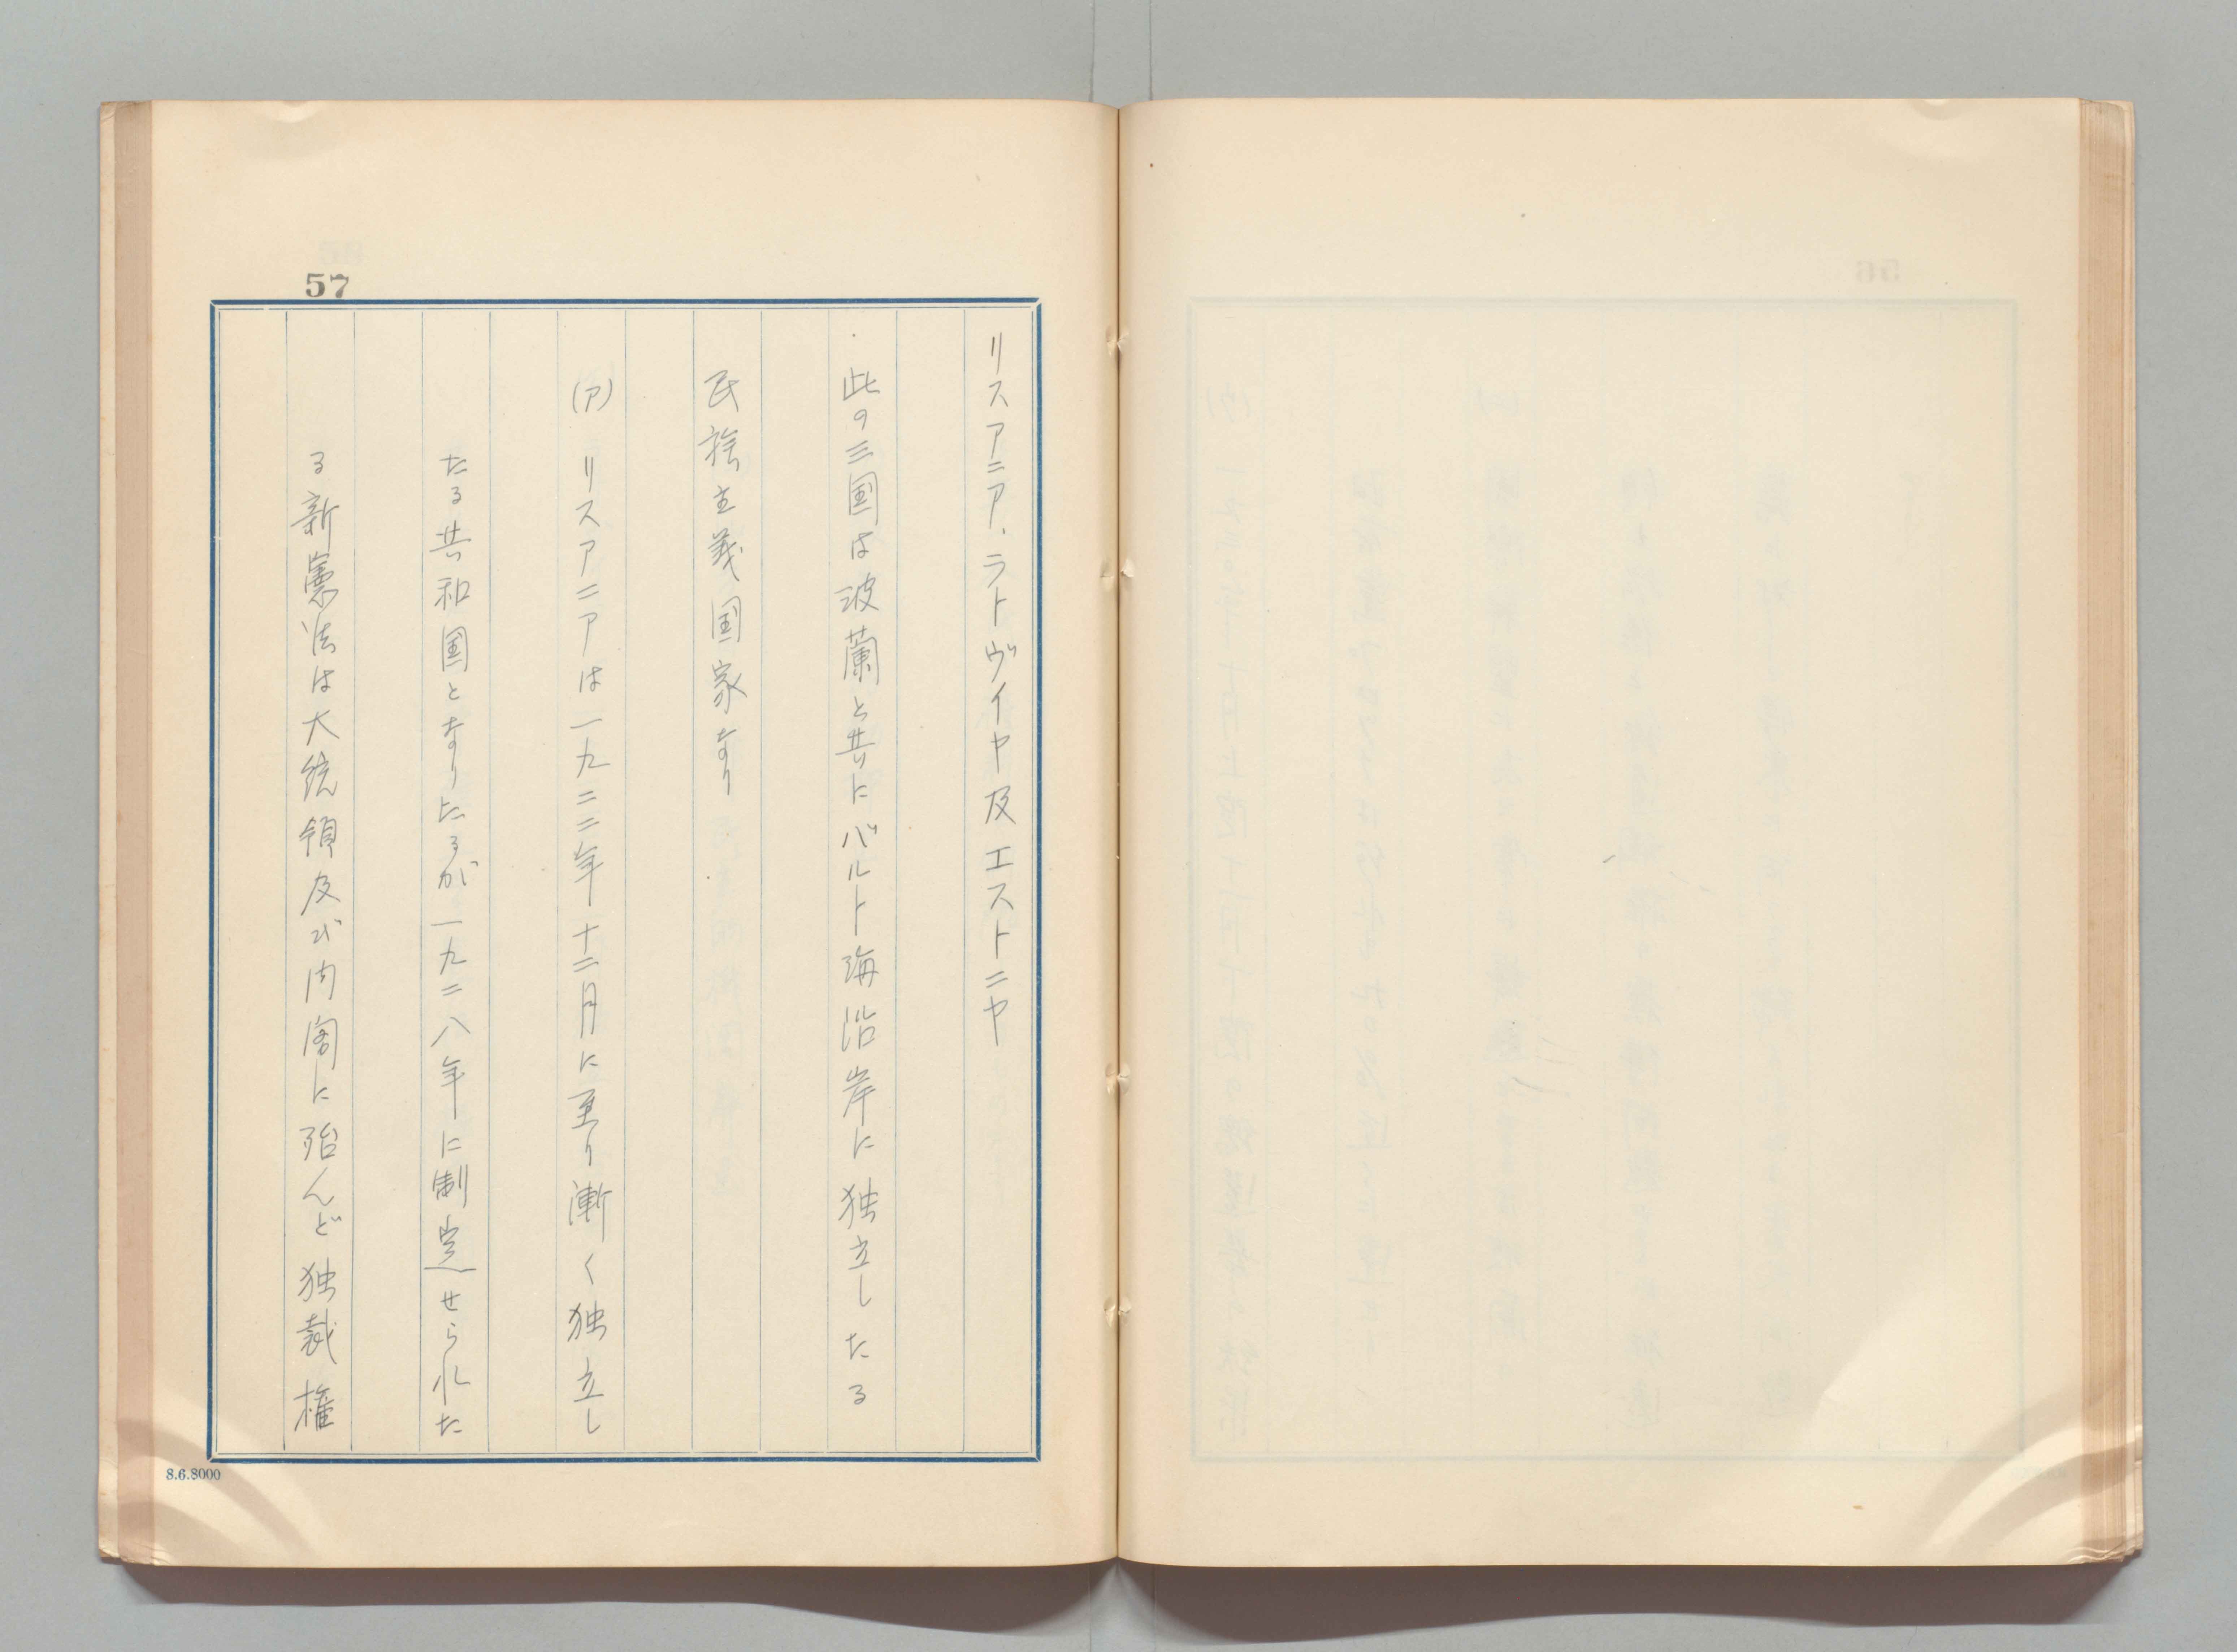 57
リスアニア、ラトヴイヤ及エストニヤ
此の三国は波蘭と共にバルト海沿岸に独立したる
民族主義国家なり
(ア) リスアニアは一九二二年十二月に至り漸く独立し
たる共和国となりたるが一九二八年に制定せられた
る新憲法は大統領及び内閣に殆んど独裁権
8.6.8000